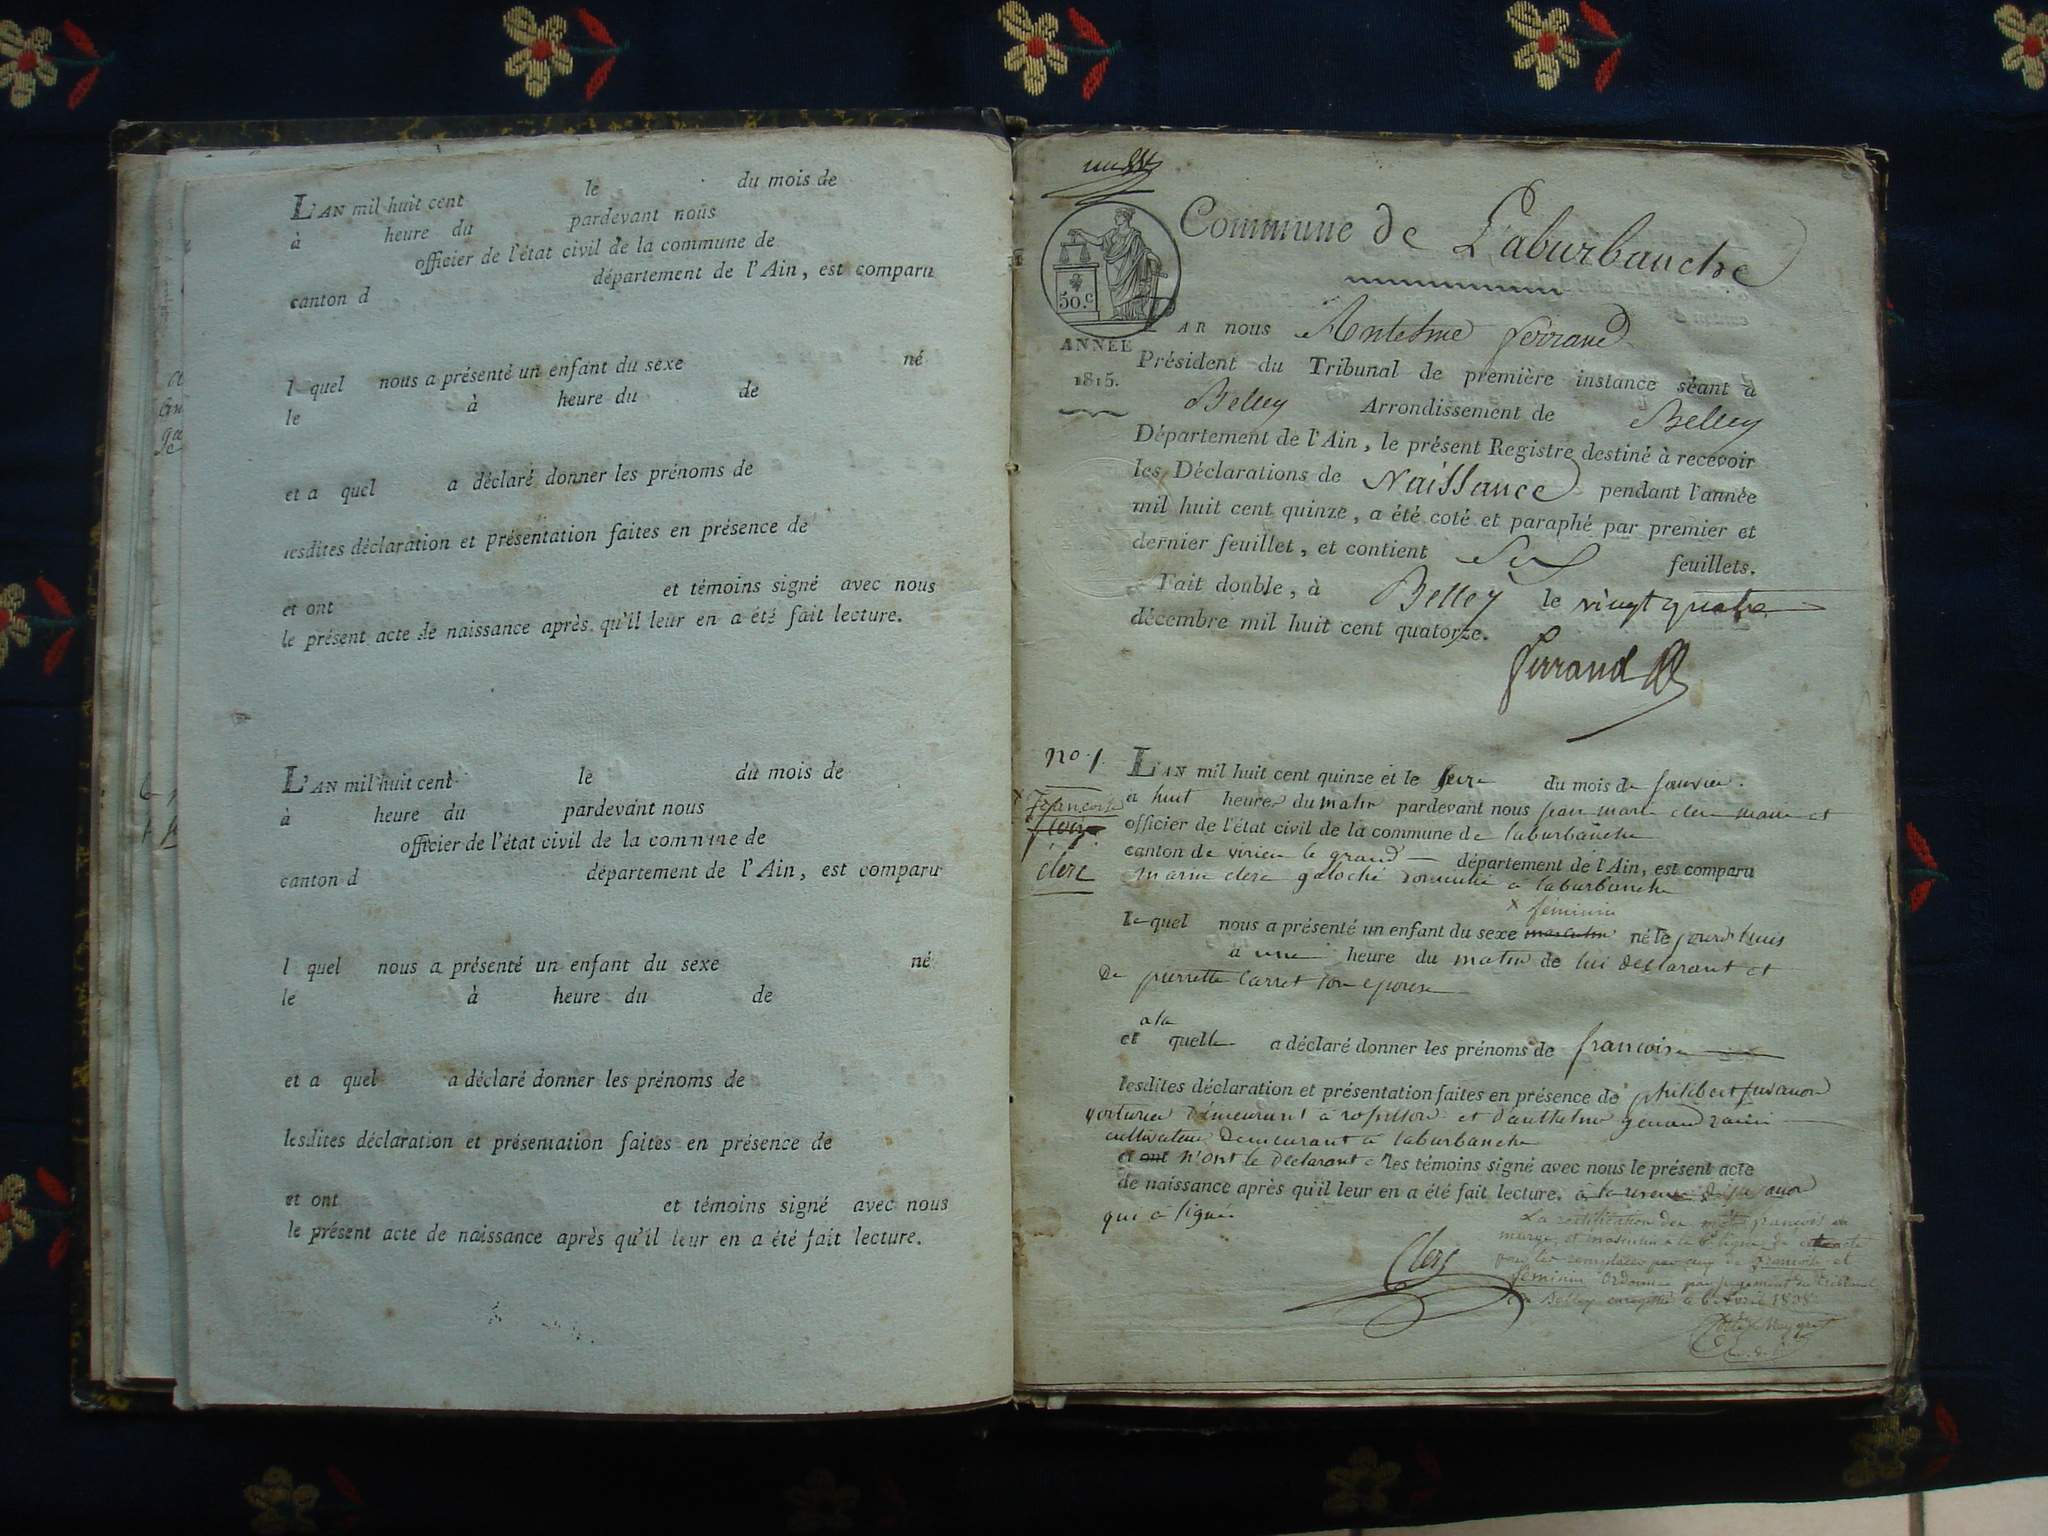 L'AN mil huit cent le du mois de
à heure du pardevant nous
officier de l'état civil de la commune de
canton d département de l'Ain, est comparu
l quel nous a présenté un enfant du sexe né
le à heure du de
et a quel a déclaré donner les prénoms de
lesdites déclaration et présentation faites en présence de
et ont et témoins signé avec nous
le présent acte de naissance après qu'il leur en a été fait lecture.
L'AN mil huit cent le du mois de
à heure du pardevant nous
officier de l'état civil de la commune de
canton d département de l'Ain, est comparu
l quel nous a présenté un enfant du sexe né
le à heure du de
et a quel a déclaré donner les prénoms de
lesdites déclaration et présentation faites en présence de
et ont et témoins signé avec nous
le présent acte de naissance après qu'il leur en a été fait lecture.
Commune de Laburbanche
50.c
ANNÉE
1815.
PAR nous Antelme ferrand
Président du Tribunal de première instance séant à
Belley Arrondissement de Belley
Département de l'Ain, le présent Registre destiné à recevoir
les Déclarations de Naissance pendant l'année
mil huit cent quinze, a été coté et paraphé par premier et
dernier feuillet, et contient feuillets.
Fait double, à Belley le vingt quatre
décembre mil huit cent quatorze.
ferrand
no. 1
françoise
clerc
L'AN mil huit cent quinze et le du mois de janvier
a huit heures du matin pardevant nous jean marie clerc maire et
officier de l'état civil de la commune de laburbanche
canton de virieu le grand département de l'Ain, est comparu
marin clerc galoché domicilié à laburbanche
x féminin
le quel nous a présenté un enfant du sexe masculin né le jourd'huis
à une heure du matin de lui déclarant et
De pierrette Carret son epouse
a la
et quelle a déclaré donner les prénoms de francoise
lesdites déclaration et présentation faites en présence de philibert juvanon
voiturier demeurant à rossillon et d'anthelme
cultivateur Demeurant à laburbanche
et ont n'ont le déclarant et les témoins signé avec nous le présent acte
de naissance après qu'il leur en a été fait lecture. à la reserve de juvanon
qui a signé
Clerc
La rectification des mots françois en
marge, et masculin a la 6e ligne de cet acte
pour les remplacer par ceux de françoise et
féminin ordonnée par jugement du tribunal
de Belley enregistré le 6 avril 1838